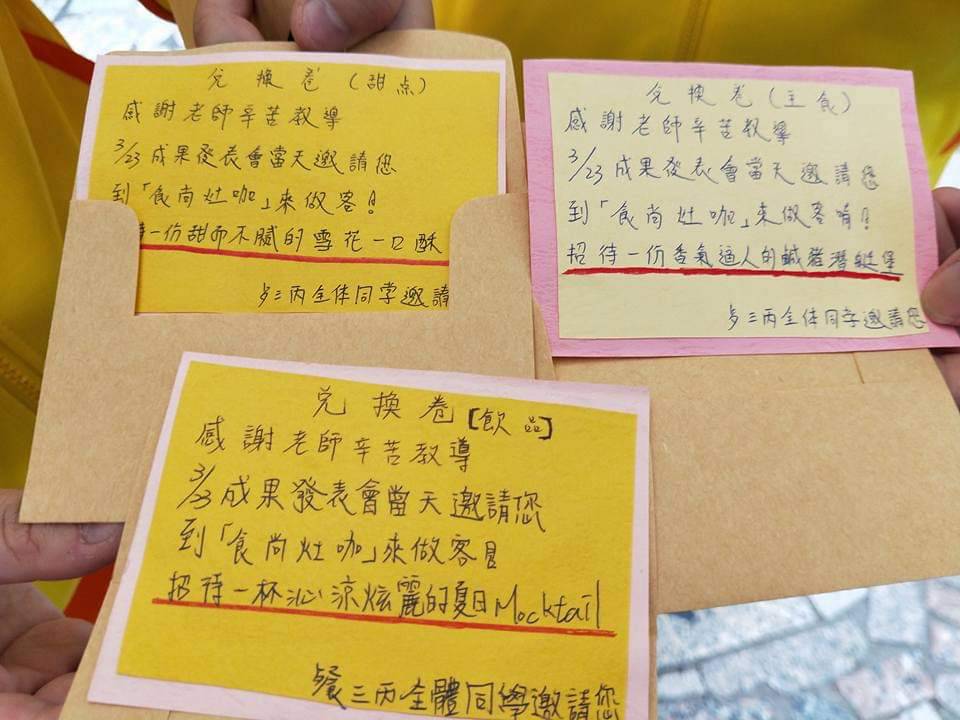 兌換卷(甜点)
感謝老師辛苦教導
3/23成果發表會當天邀請您
到「食尚灶咖」來做客!
待一份甜而不膩的雪花一口酥
餐三丙全体同学邀請
兌換卷(主食)
感謝老師辛苦教導
3/23成果發表會當天邀請您
到「食尚灶咖」來做客唷!
招待一份香氣逼人的鹹豬潛艇堡
餐三丙全体同学邀請您
兌換卷[飲品]
感謝老師辛苦教導
3/23成果發表會當天邀請您
到「食尚灶咖」來做客!
招待一杯沁涼炫麗的夏日Mocktail
餐三丙全體同學邀請您